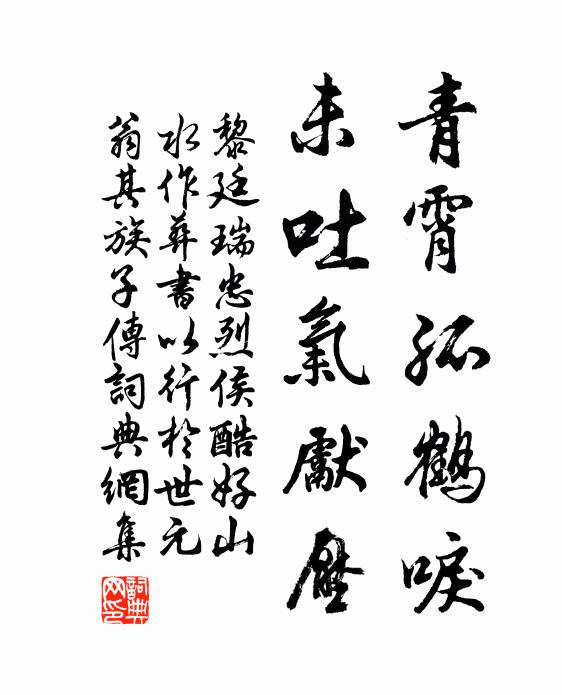 青霄孤鶴唳
未吐氣獻壓
黎廷瑞忠烈侯酷好山
水作葬書以行於世元
翁其族子傳詞典網集
詞典